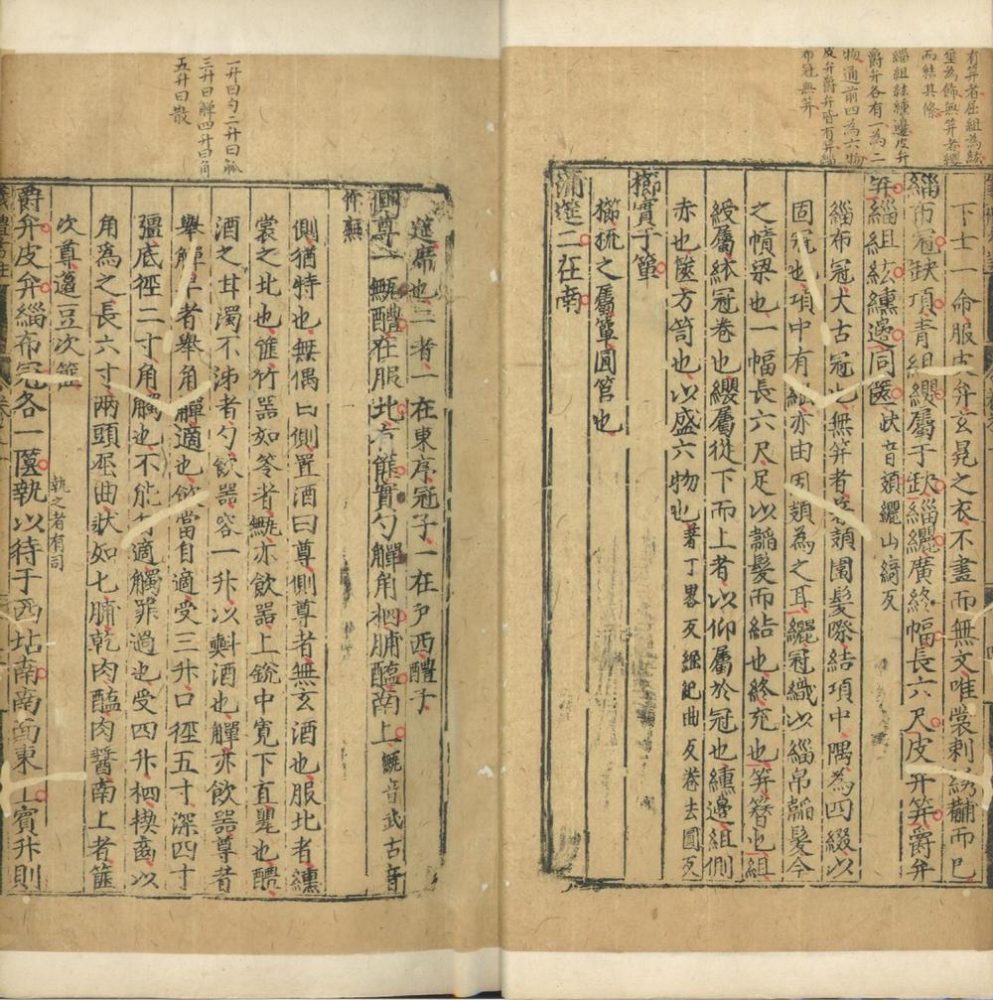 有笄者屈組為紘
垂為飾無笄者纓
而結其絛
緇組紘纁邊皮弁
爵弁各有一為二
物通前四為六物
皮弁爵弁皆有笄緇
布冠無笄
下士一命服皮弁玄冕之衣不畫而無文唯裳刺黻而已
緇布冠缺項青組纓屬于缺緇纚廣終幅長六尺皮弁笄爵弁
笄緇組紘纁邊同匧 缺音頍纚山綺反
緇布冠大古冠也無笄者著頍圍髮際結項中隅為四綴以
固冠也項中有䋝亦由固頍為之耳纚冠織以緇帛韜髮今
之幘梁也一幅長六尺足以韜髮而結也終充也笄簪也組
綬屬紘冠卷也纓屬從下而上者以仰屬於冠也纁邊組側
赤也篋方笥也以盛六物也 著丁畧反 紀曲反卷去圓反
櫛實于簞
櫛梳之屬簞圓笥也
蒲筵二在南
一升曰勺二升曰觚
三升曰觶四升曰角
五升曰散
筵席也二者一在東序冠子一在戶西醴子
側尊一甒醴在服北有篚實勺觶角柶脯醢南上 甒音武古音
作廡
側猶特也無偶曰側置酒曰尊側尊者無玄酒也服北者纁
裳之北也篚竹器如笭者甒亦飲器上銳中寬下直韏也醴
酒之甘濁不泲者勺飲器容一升以㪺酒也觶亦飲器尊者
舉觶卑者舉角觶適也飲當自適受三升口徑五寸深四寸
彊底徑二寸角觸也不能自適觸罪過也受四升柶㮞齒以
角為之長六寸兩頭屈曲狀如匕脯乾肉醢肉醬南上者篚
次尊籩豆次篚
爵弁皮弁緇布冠各一匴執以待于西坫南南面東上賓升則
執之者有司